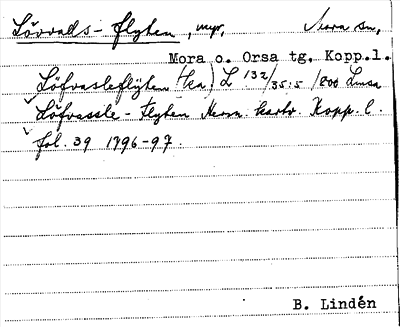 Lövvals-flyten, myr, Mora sn,
Mora o. Orsa tg. Kopp.l.
Löfvasleflÿten (ka) L 132/35:5 1800 Lmsa
Löfvassle-Flyten Mora kartv. Kopp. l.
fol. 39 1796-97.
B. Lindén